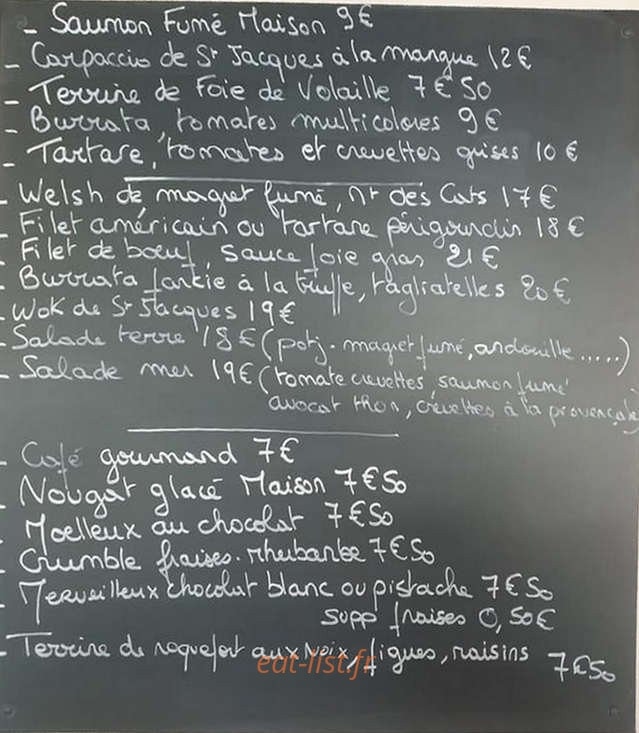 - Saumon Fumé Maison 9€
- Carpaccio de St Jacques à la mangue 12€
- Terrine de Foie de Volaille 7€50
- Burrata, tomates multicolores 9€
- Tartare, tomates et crevettes grises 10€
- Welsh de magret fumé, Mt des Cats 17€
- Filet américain ou tartare périgourdin 18€
- Filet de boeuf, sauce foie gras 21€
- Burrata farcie à la truffe, tagliatelles 20€
- Wok de St Jacques 19€
- Salade terre 18€ (potj. magret fumé, andouille.....)
- Salade mer 19€ (tomate crevettes saumon fumé
avocat thon, crevettes à la provençale)
- Café gourmand 7€
- Nougat glacé Maison 7€50
- Moelleux au chocolat 7€50
- Crumble fraises-rhubarbe 7€50
- Merveilleux chocolat blanc ou pistache 7€50
supp fraises 0,50€
- Terrine de roquefort aux noix, figues, raisins 7€50
eat-list.fr